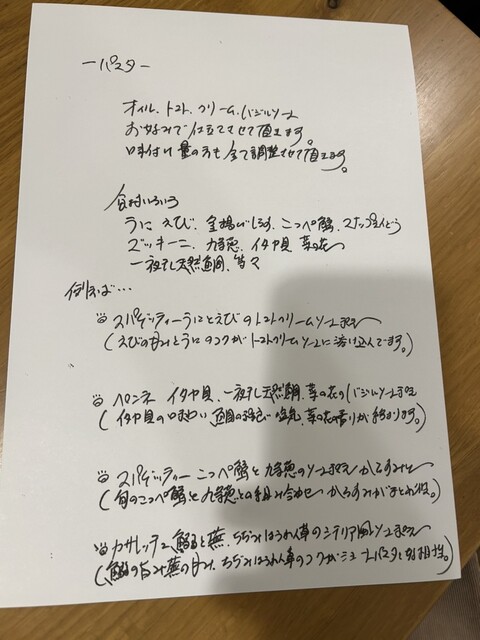 ーパスタ－
オイル、トマト、クリーム、バジルソース
お好みで仕立てさせて頂きます。
味付け 量の方も全て調整させて頂きます。
食材いろいろ
うに えび、釜揚げしらす、こっぺ蟹、スナップえんどう
ズッキーニ、九条葱、イタヤ貝 菜の花
一夜干し天然真鯛、等々
例えば…
スパゲッティーうにとえびのトマトクリームソース
(えびの甘みとうにのコクがトマトクリームソースに溶け込んでます。)
ペンネ イタヤ貝、一夜干し天然鯛、菜の花のバジルソース
(イタヤ貝の味わい 真鯛の 塩気、菜の花の香りが 。)
スパゲッティー こっぺ蟹と九条葱のソース からすみ
(旬のこっぺ蟹と九条葱との組み合わせ からすみがまとめ役。)
カサレッチェ と蕪、ちぢみほうれん草のシチリア風ソース
( の旨み蕪の甘み、ちぢみほうれん草のコクがショートパスタと好相性。)